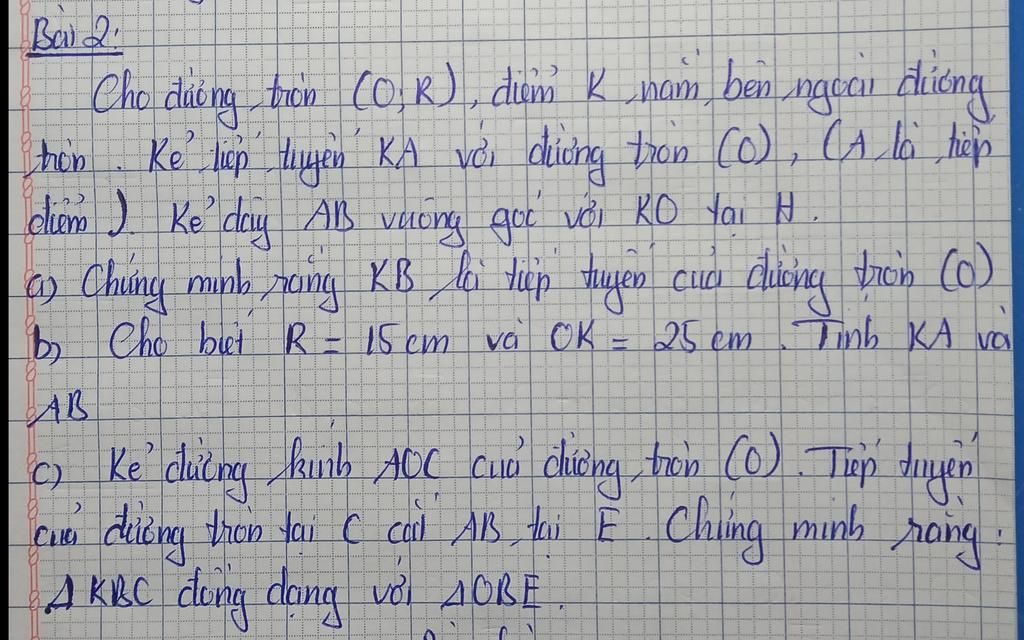 Bài 2:
Cho đường tròn (O; R), điểm K nằm bên ngoài đường
tròn. Kẻ tiếp tuyến KA với đường tròn (O), (A là tiếp
điểm). Kẻ dây AB vuông góc với KO tại H.
a) Chứng minh rằng KB là tiếp tuyến của đường tròn (O)
b) Cho biết R = 15 cm và OK = 25 cm. Tính KA và
AB
c) Kẻ đường kính AOC của đường tròn (O). Tiếp tuyến
của đường tròn tại C cắt AB tại E. Chứng minh rằng:
Δ KBC đồng dạng với ΔOBE.